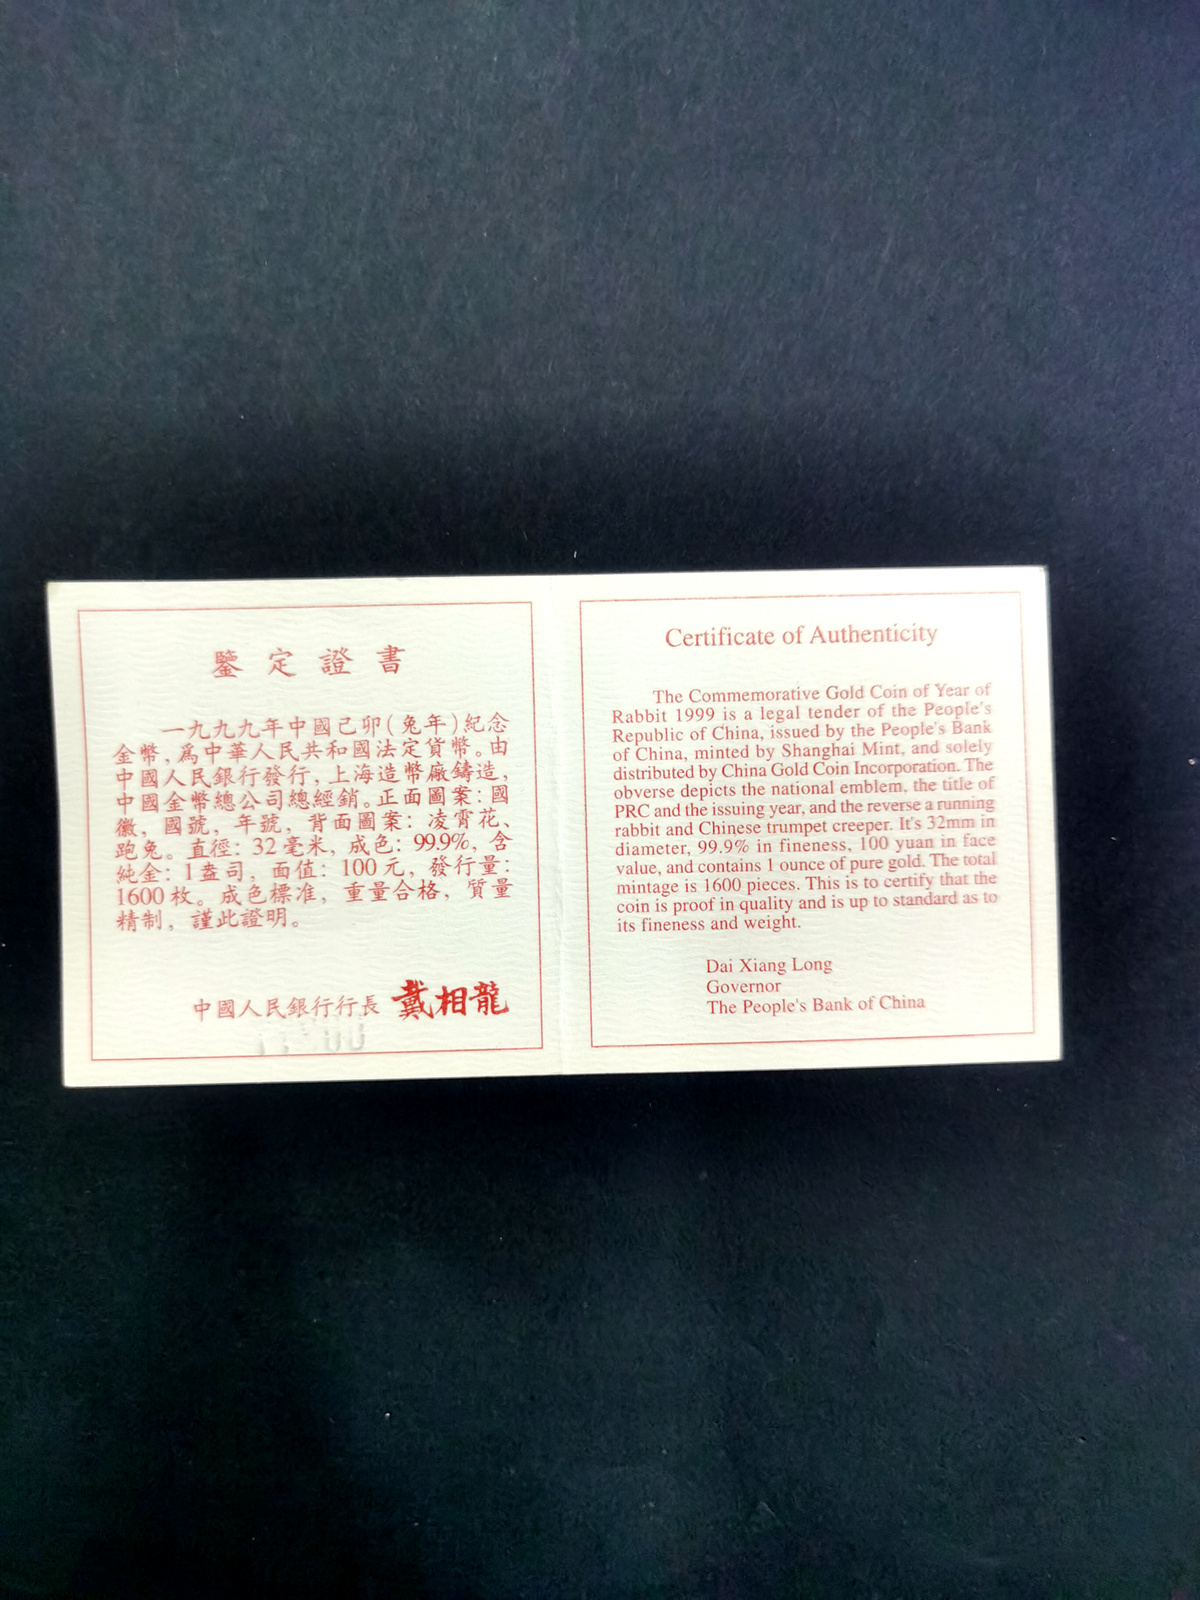 鑒定證書
一九九九年中國己卯(兔年)紀念
金幣,爲中華人民共和國法定貨幣。由
中國人民銀行發行,上海造幣廠鑄造,
中國金幣總公司總經銷。正面圖案:國
徽,國號,年號,背面圖案:凌霄花、
跑兔。直徑:32毫米,成色:99.9%,含
純金:1盎司,面值:100元,發行量:
1600枚。成色標准,重量合格,質量
精制,謹此證明。
中國人民銀行行長 戴相龍
Certificate of Authenticity
The Commemorative Gold Coin of Year of
Rabbit 1999 is a legal tender of the People's
Republic of China, issued by the People's Bank
of China, minted by Shanghai Mint, and solely
distributed by China Gold Coin Incorporation. The
obverse depicts the national emblem, the title of
PRC and the issuing year, and the reverse a running
rabbit and Chinese trumpet creeper. It's 32mm in
diameter, 99.9% in fineness, 100 yuan in face
value, and contains 1 ounce of pure gold. The total
mintage is 1600 pieces. This is to certify that the
coin is proof in quality and is up to standard as to
its fineness and weight.
Dai Xiang Long
Governor
The People's Bank of China